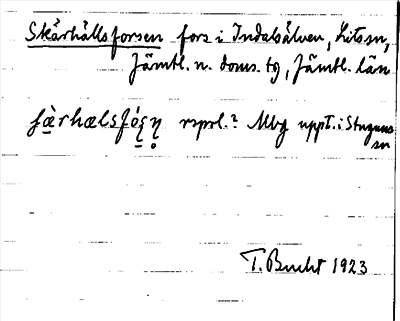 Skärhällsforsen fors i Indalsälven, Litssn,
Jämtl. n. doms. tg, Jämtl. län
rsprl.? Mbg uppt. i Stuguns
sn
T. Bucht 1923